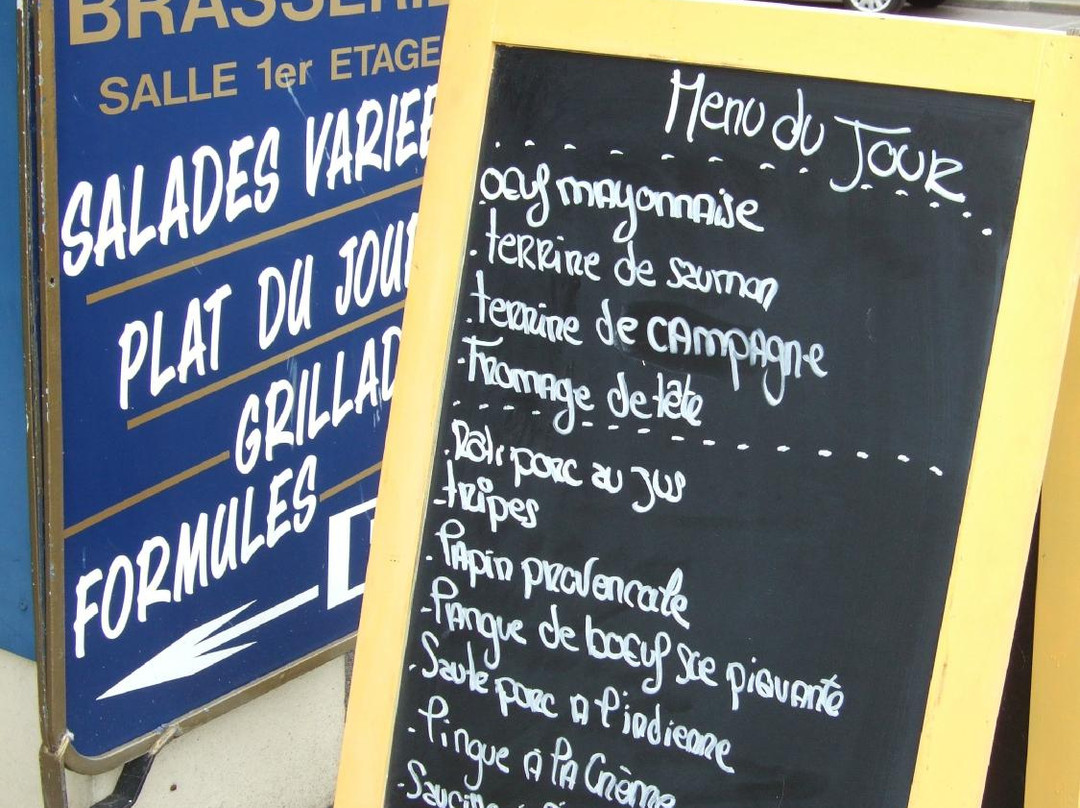 BRASSERIE
SALLE 1er ETAGE
SALADES VARIEE
PLAT DU JOU
GRILLAD
FORMULES
Menu du JOUR
oeuf mayonnaise
terrine de saumon
terrine de CAMPAGNE
Fromage de tête
Rôti porc au jus
tripes
lApin provencale
lAngue de boeuf sce piquante
Sauté porc A l'indienne
lingue À lA Crème